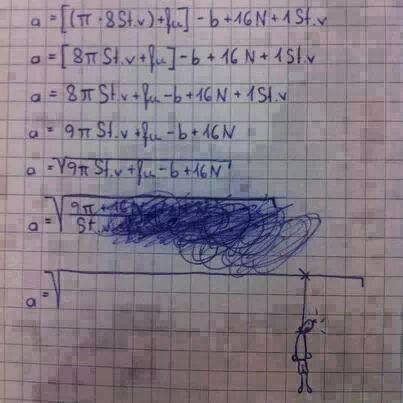 a = [(π · 8St.v) + fμ] - b + 16N + 1St.v
a = [8π St.v + fμ] - b + 16N + 1St.v
a = 8π St.v + fμ - b + 16N + 1St.v
a = 9π St.v + fμ - b + 16N
a = √9π St.v + fμ - b + 16N
a = √9π + 16N
St.v
a = √